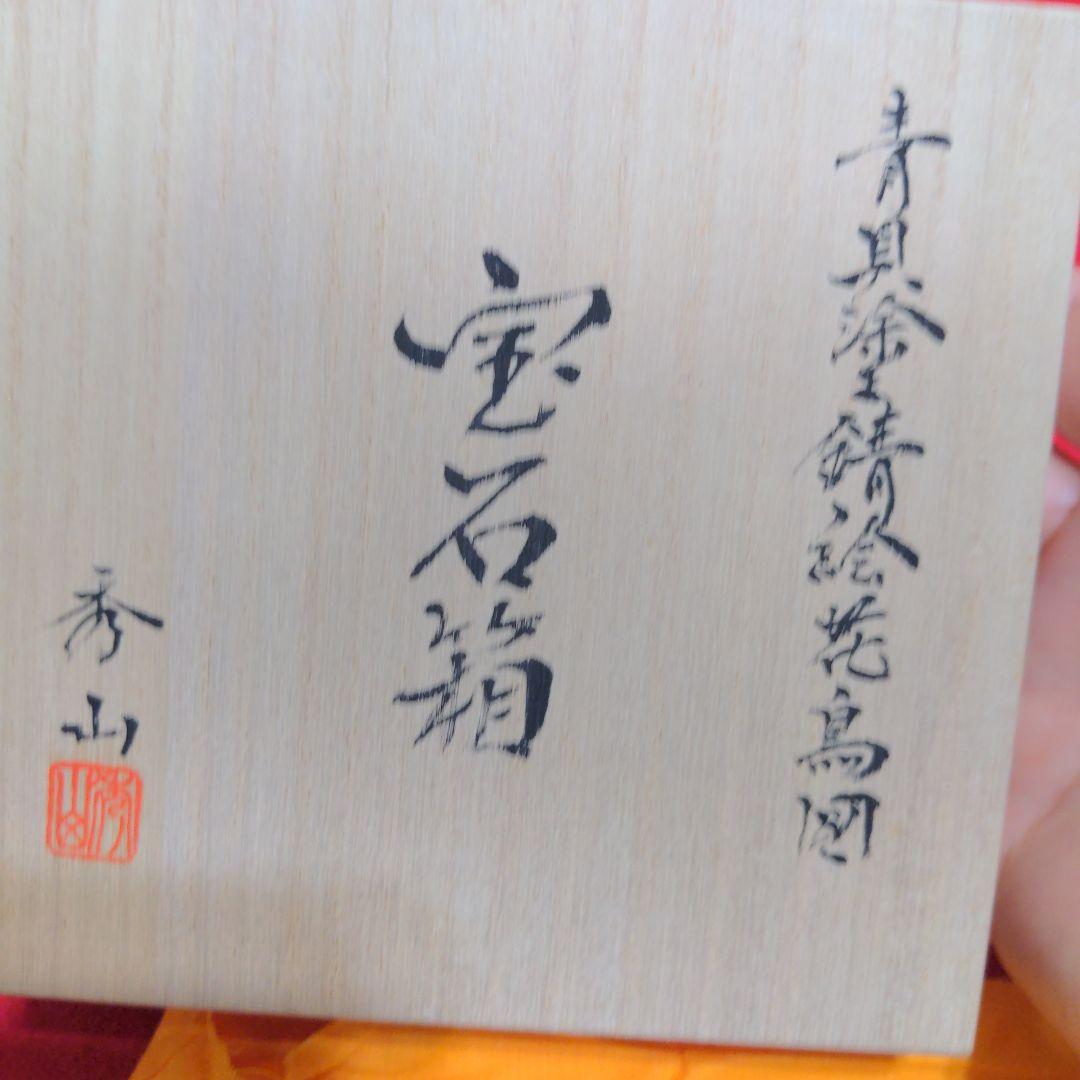 青貝塗錆絵花鳥図
宝石箱
秀山
秀山